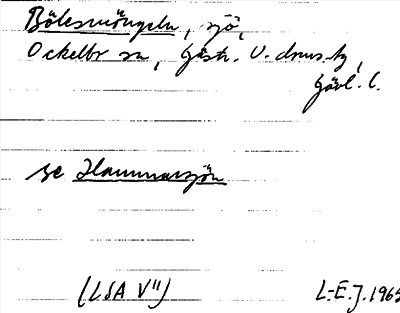 Bölesmöngeln, sjö,
Ockelbo sn, Gästr. V. doms.hg,
Gävl. l.
se Hammarsjön
(LSA V")
L-E.J. 1965